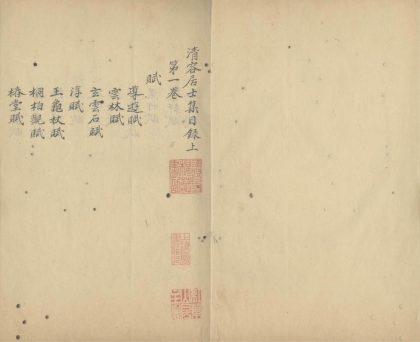 清容居士集目錄上
第一卷
賦
導遊賦
雲林賦
玄雲石賦
淳賦
玉龜杖賦
桐柏觀賦
椿堂賦